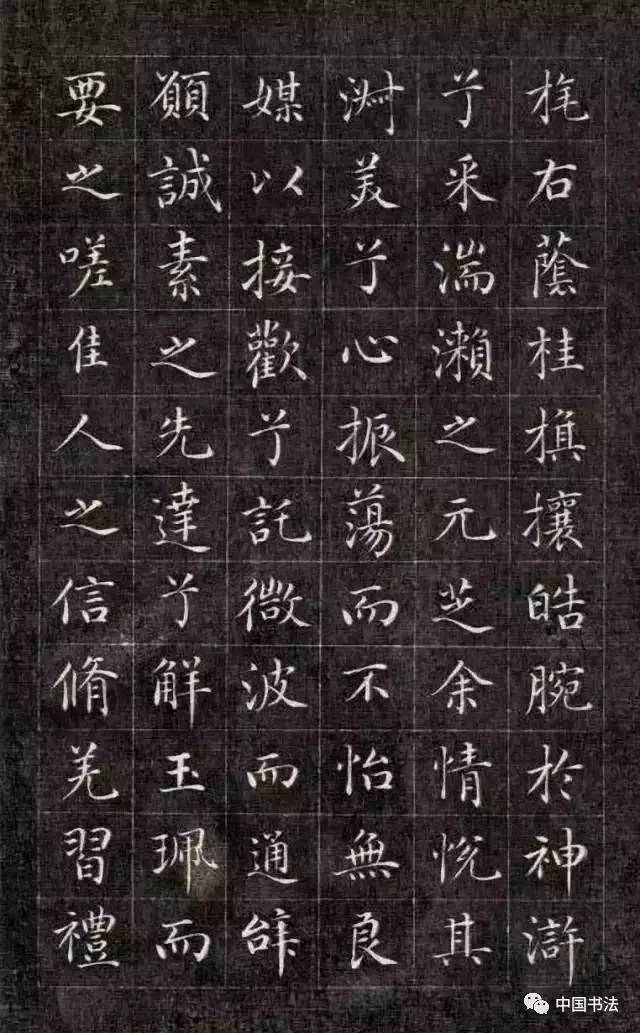 旄右蔭桂旗攘皓腕於神滸
兮采湍瀨之元芝余情悅其
淑美兮心振蕩而不怡無良
媒以接歡兮託微波而通辭
願誠素之先達兮解玉珮而
要之嗟佳人之信脩羌習禮
中国书法